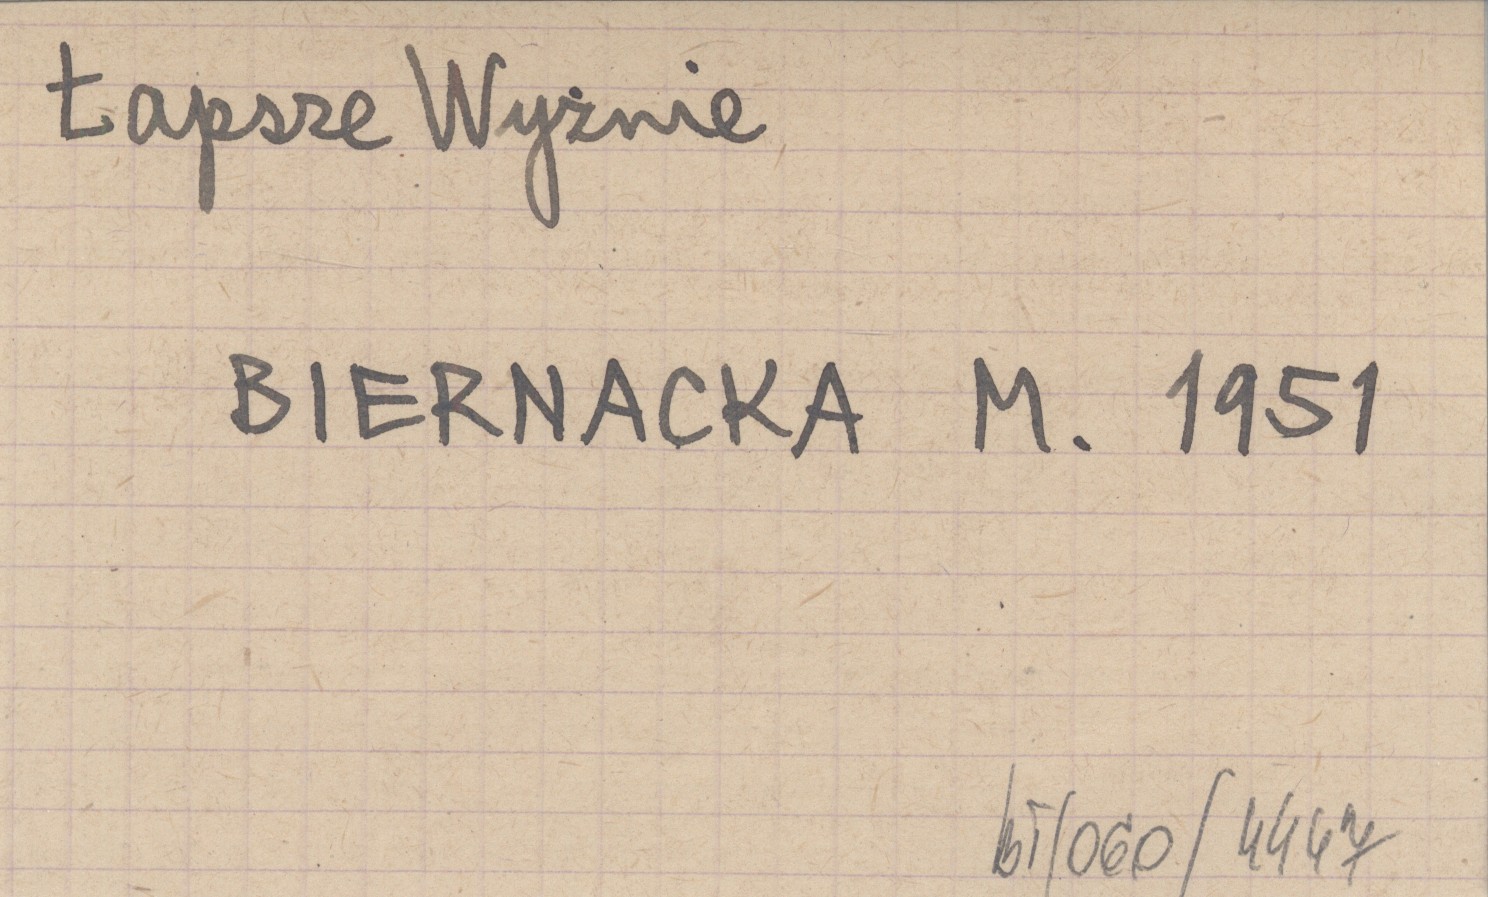 Łapsze Wyżnie
BIERNACKA M. 1951
bi/060/4447